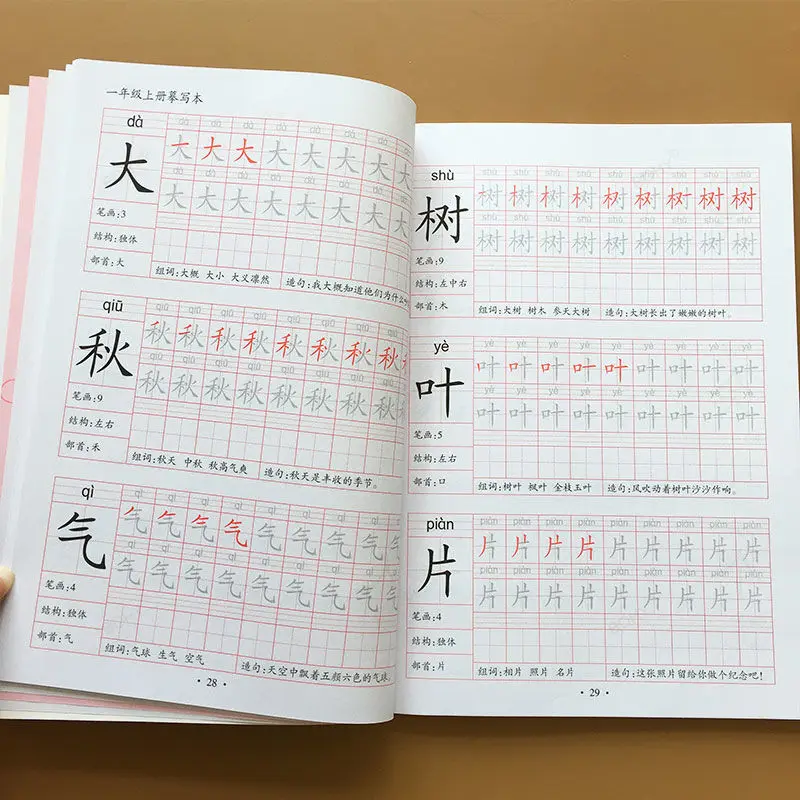 一年级上册摹写本
dà
dà dà dà dà dà dà dà dà
大 大 大 大 大 大 大 大 大
dà dà dà dà dà dà dà dà
大 大 大 大 大 大 大 大
笔画:3
结构:独体
部首:大
组词:大概 大小 大义凛然 造句:我大概知道他们为什么
qiū
qiū qiū qiū qiū qiū qiū qiū qiū
秋 秋 秋 秋 秋 秋 秋 秋 秋
qiū qiū qiū qiū qiū qiū qiū qiū
秋 秋 秋 秋 秋 秋 秋 秋
笔画:9
结构:左右
部首:禾
组词:秋天 中秋 秋高气爽 造句:秋天是丰收的季节。
qì
qì qì qì qì qì qì qì qì qì
气 气 气 气 气 气 气 气 气 气
qì qì qì qì qì qì qì qì qì
气 气 气 气 气 气 气 气 气
笔画:4
结构:独体
部首:气
组词:气球 生气 空气 造句:天空中飘着五颜六色的气球
28
shù
shù shù shù shù shù shù shù shù shù
树 树 树 树 树 树 树 树 树 树
shù shù shù shù shù shù shù shù shù
树 树 树 树 树 树 树 树 树
笔画:9
结构:左中右
部首:木
组词:大树 树木 参天大树 造句:大树长出了嫩嫩的树叶。
yè
yè yè yè yè yè yè yè yè yè
叶 叶 叶 叶 叶 叶 叶 叶 叶 叶
yè yè yè yè yè yè yè yè yè
叶 叶 叶 叶 叶 叶 叶 叶 叶
笔画:5
结构:左右
部首:口
组词:树叶 枫叶 金枝玉叶 造句:风吹动着树叶沙沙作响。
piàn
piàn piàn piàn piàn piàn piàn piàn piàn piàn
片 片 片 片 片 片 片 片 片 片
piàn piàn piàn piàn piàn piàn piàn piàn piàn
片 片 片 片 片 片 片 片 片
笔画:4
结构:独体
部首:片
组词:相片 照片 名片 造句:这张照片留给你做个纪念吧!
29